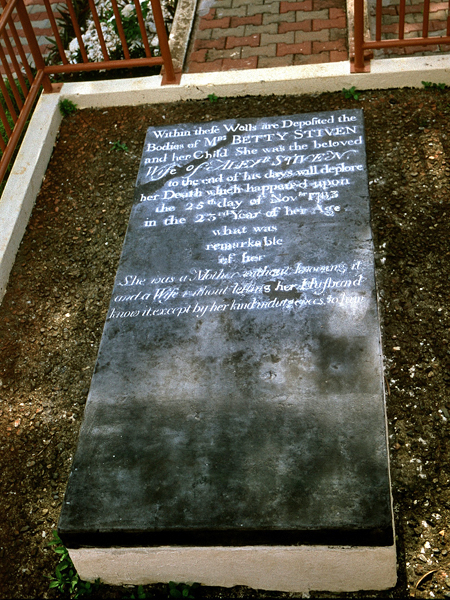 Within these Walls are Deposited the
Bodies of Mrs BETTY STIVEN
and her Child She was the beloved
Wife of ALEXr STIVEN
to the end of his days will deplore
her Death which happened upon
the 25th day of Novbr 1783
in the 23rd Year of her Age
what was
remarkable
of her
She was a Mother without knowing it
and a Wife without letting her Husband
know it except by her kind indulgences to him